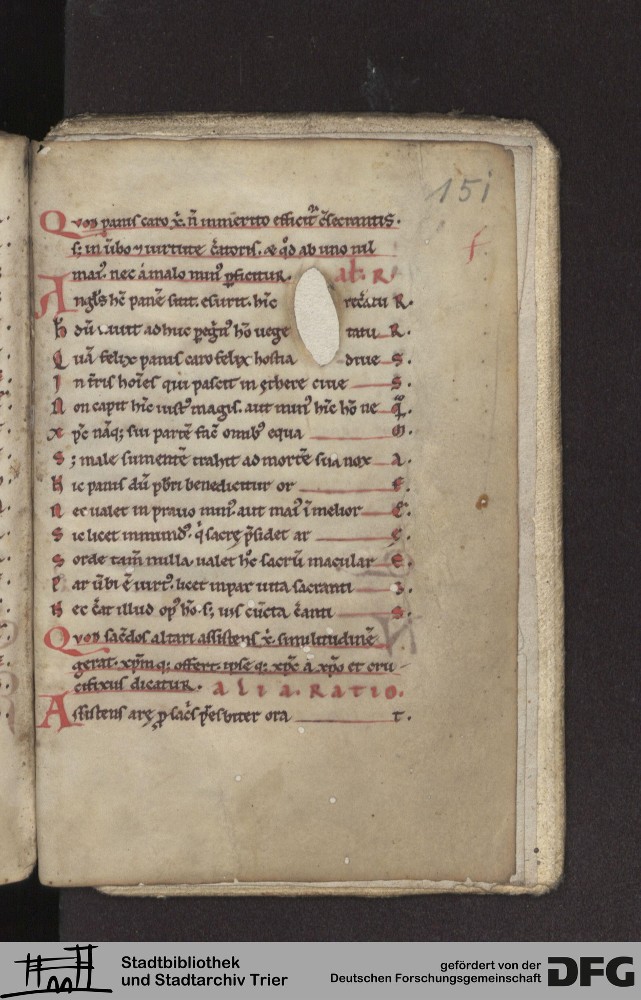 151
f
Qvod panis caro x̄. n̄ inmerito efficit᷑ c̄secrantis.
s; in ūbo ⁊ uirtute c̄atoris. & qd ab uno nil
mai᷒. nec a malo min᷒ ꝑficitur. al. R.
Angl's hc̄ panē sitit. esurit. hic recreatu R.
h dū uiuit adhuc ꝑegrin᷒ hō uege tatu R.
Quā felix panis caro felix hostia diue S.
I n t̄ris hoīes qui pascit in ęthere ciue S.
N on capit hīc iust᷒ magis. aut min᷒ hīc hō ne q̄.
x pc̄ nāq; sui partē fac̄ omīb᷒ equa M.
S ; male sumentē trahit ad mortē sua nox A.
h ic panis dū pb̄ri benedicitur or E.
N ec ualet in prauo min᷒. aut mai᷒ ī melior E.
S ic licet inmund᷒. qi sacrę p̄sidet ar E.
S orde tam̄ nulla ualet hc̄ sacrū macular E.
P ar ūbi ē uirt᷒. licet inpar uita sacranti S.
N ec c̄at illud op᷒ hō. s; uis cūcta c̄anti S.
Qvod sac̄dos altari assistens x̄. similitudinē
gerat. xp̄m q; offert. ipse q; xp̄c a xp̄o et cru
cifixus dicatur. alia. Ratio.
Assistens arę ꝓ sac̄s p̄esbiter ora t.
Stadtbibliothek
und Stadtarchiv Trier
gefördert von der
Deutschen Forschungsgemeinschaft
DFG